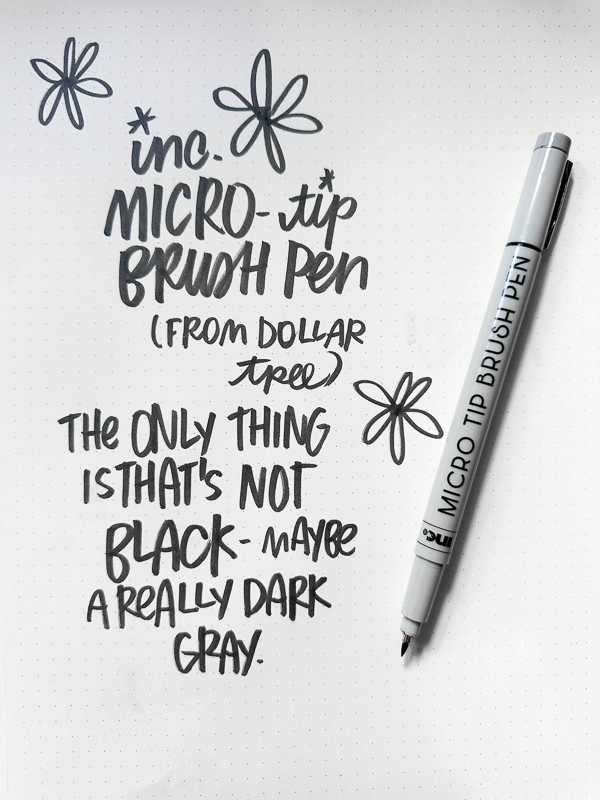 inc.
MICRO-tip
BRUSH Pen
(FROM DOLLAR
tree)
THe ONLY THING
ISTHAT's NOT
BLACK- MAYBe
A ReALLY DARK
GRAY.
MICRO TIP BRUSH PEN
inc.